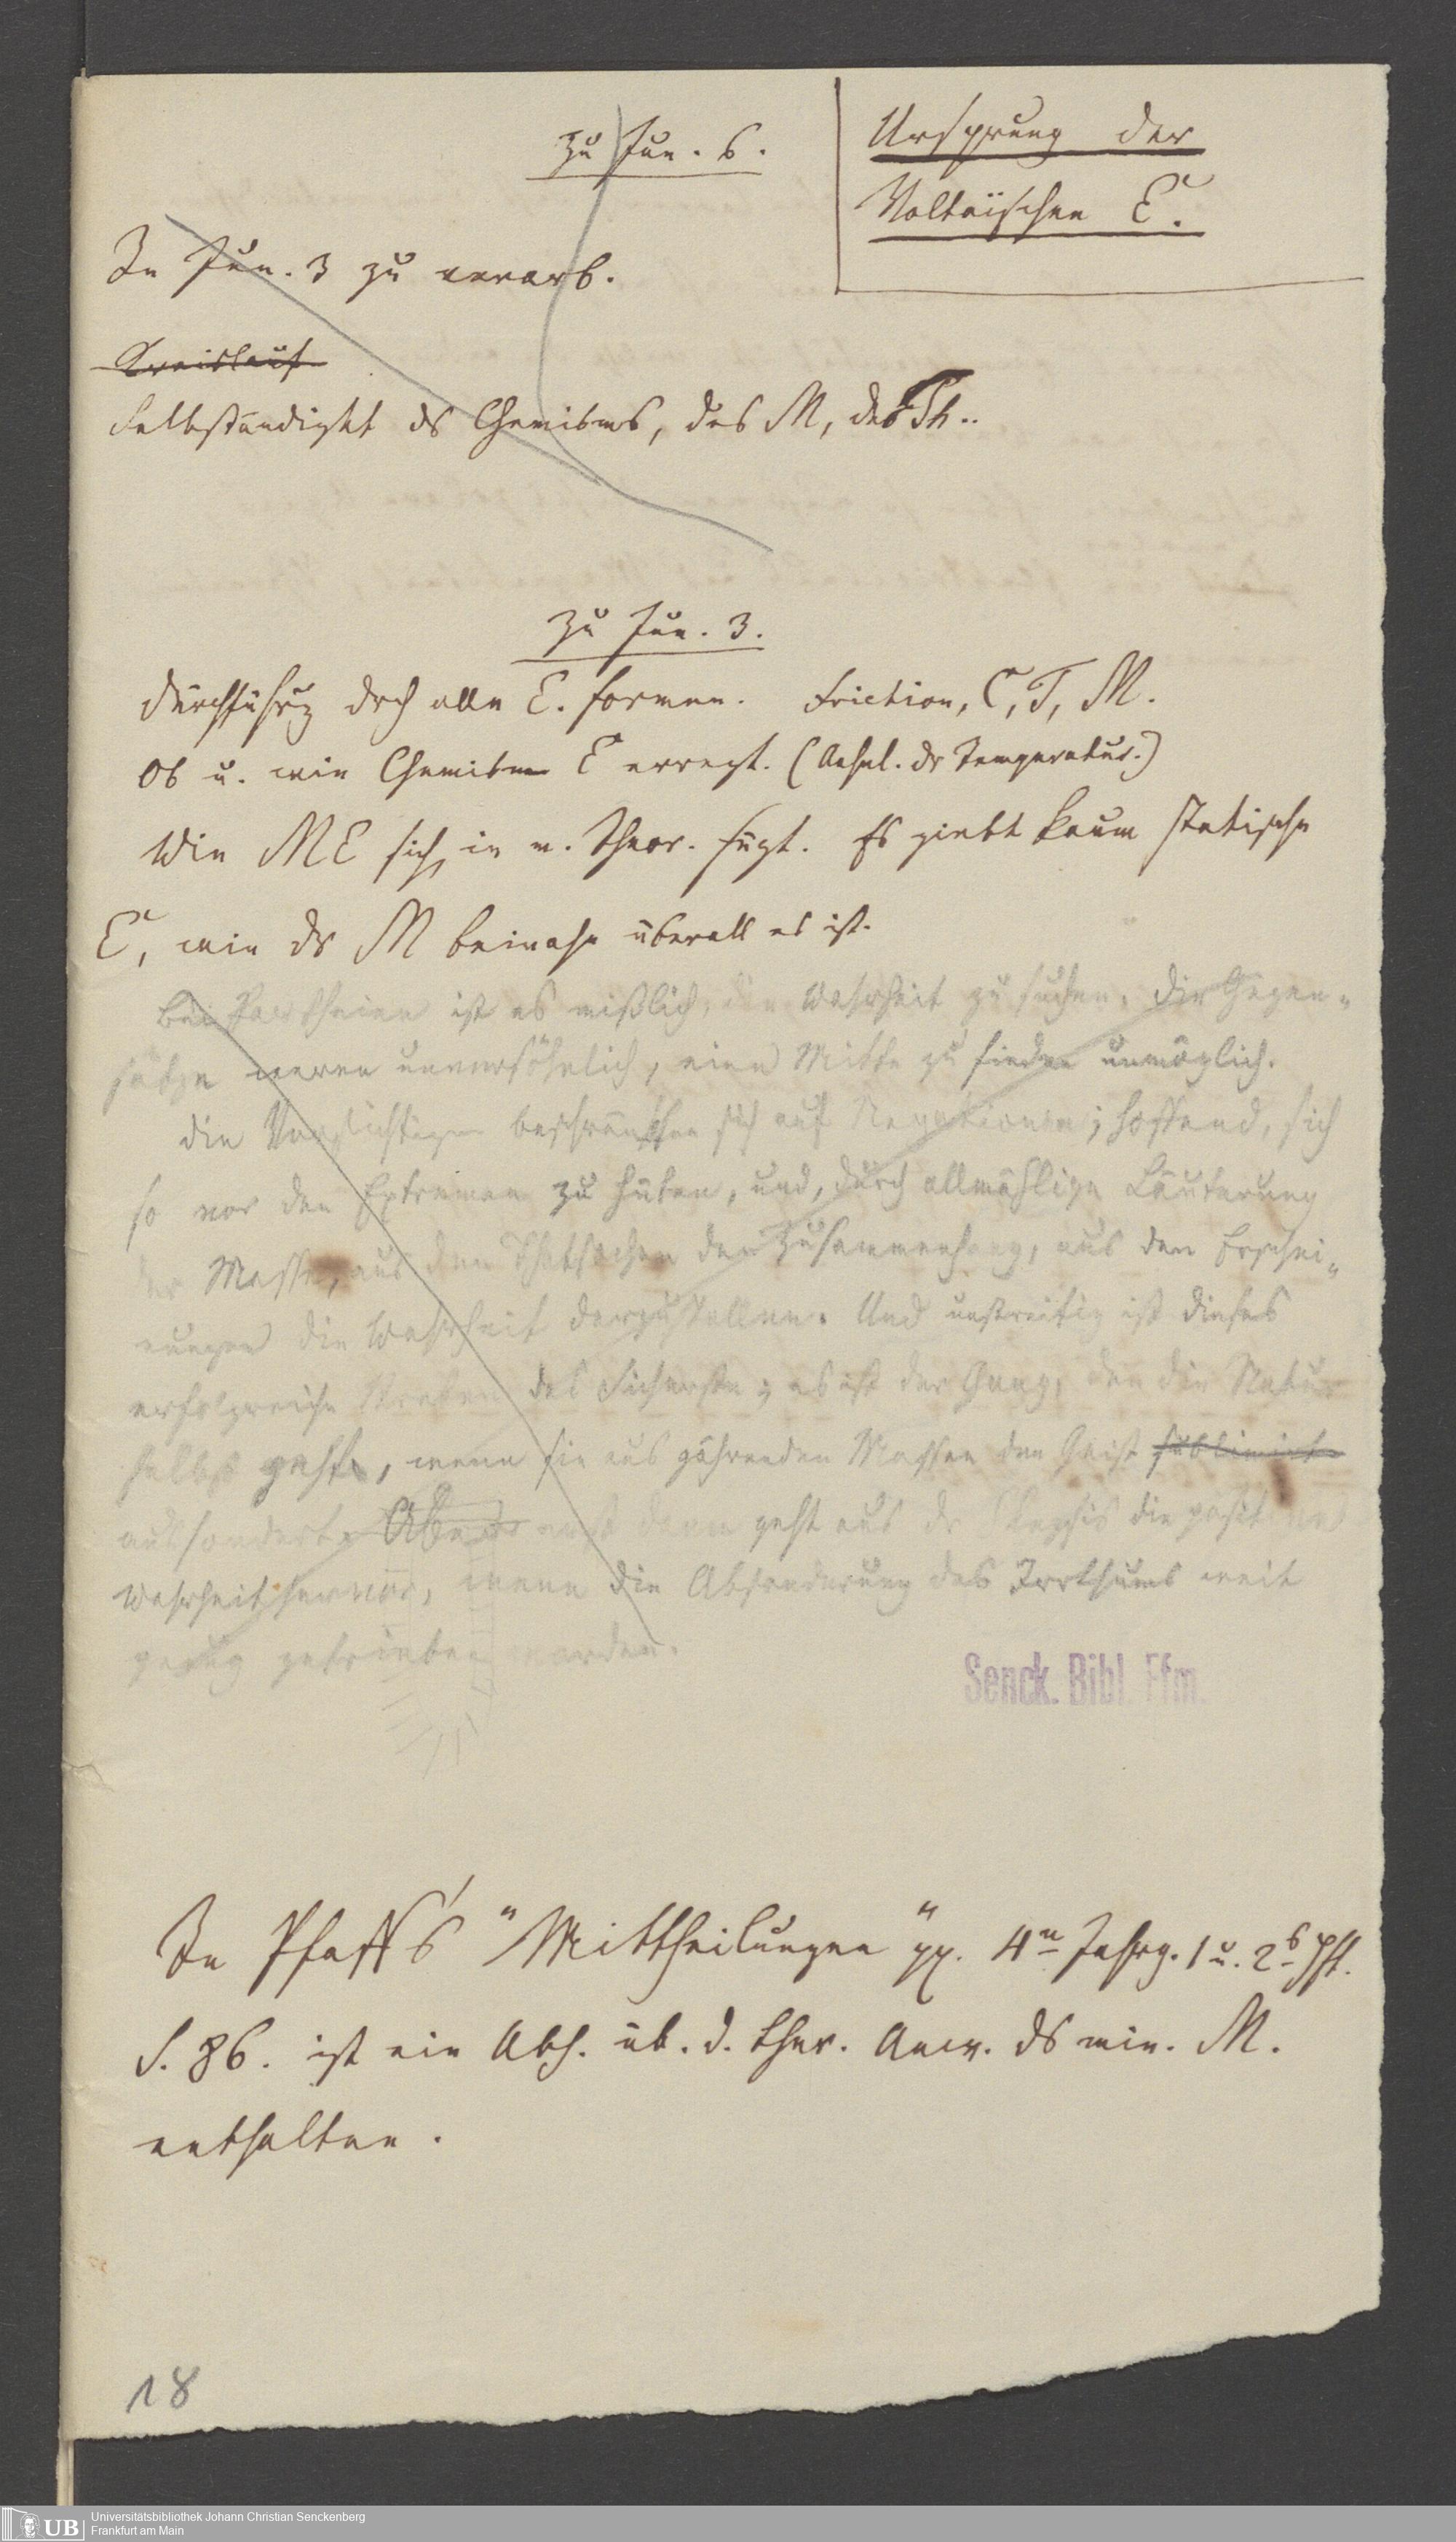 zu Jun. 6.
Ursprung der
Voltaischen E.
In Jun. 3 zu verarb.
Kreislauf
Selbständigkt ds Chemisms, des M, des Th..
Zu Jun. 3.
Durchführg drch alle E. formen. Friction, C, T, M.
Ob u. wie Chemism E erregt. (Aehnl. dr Temperatur.)
Wie ME sich in m. Theor. fügt. Es giebt kaum statische
E, wie ds M beinahe überall es ist.
Bei Partheien ist es mißlich, die Wahrheit zu suchen, die Gegen-
sätze waren unversöhnlich, eine Mitte zu finden unmöglich.
Die Vorsichtigen beschränkten sich auf Negationen; hoffend, sich
so vor den Extremen zu hüten, und, durch allmählige Läuterung
der Masse, aus den Thatsachen den Zusammenhang, aus den Erschei-
nungen die Wahrheit darzustellen. Und unstreitig ist dieses
erfolgreiche Streben das Sicherste; es ist der Gang, den die Natur
selbst geht, wenn sie aus gährenden Massen den Geist sublimirt
aussondert. Aber dann geht aus dr Skepsis die positive
Wahrheit hervor, wenn die Absonderung des Irrthums weit
genug getrieben worden.
Senck. Bibl. Ffm.
In Pfaff's "Mittheilungen" pp. 4n Jahrg. 1 u. 2s Hft.
S. 86. ist ein Abh. üb. d. ther. Anw. ds min. M.
enthalten.
18
UB
Universitätsbibliothek Johann Christian Senckenberg
Frankfurt am Main